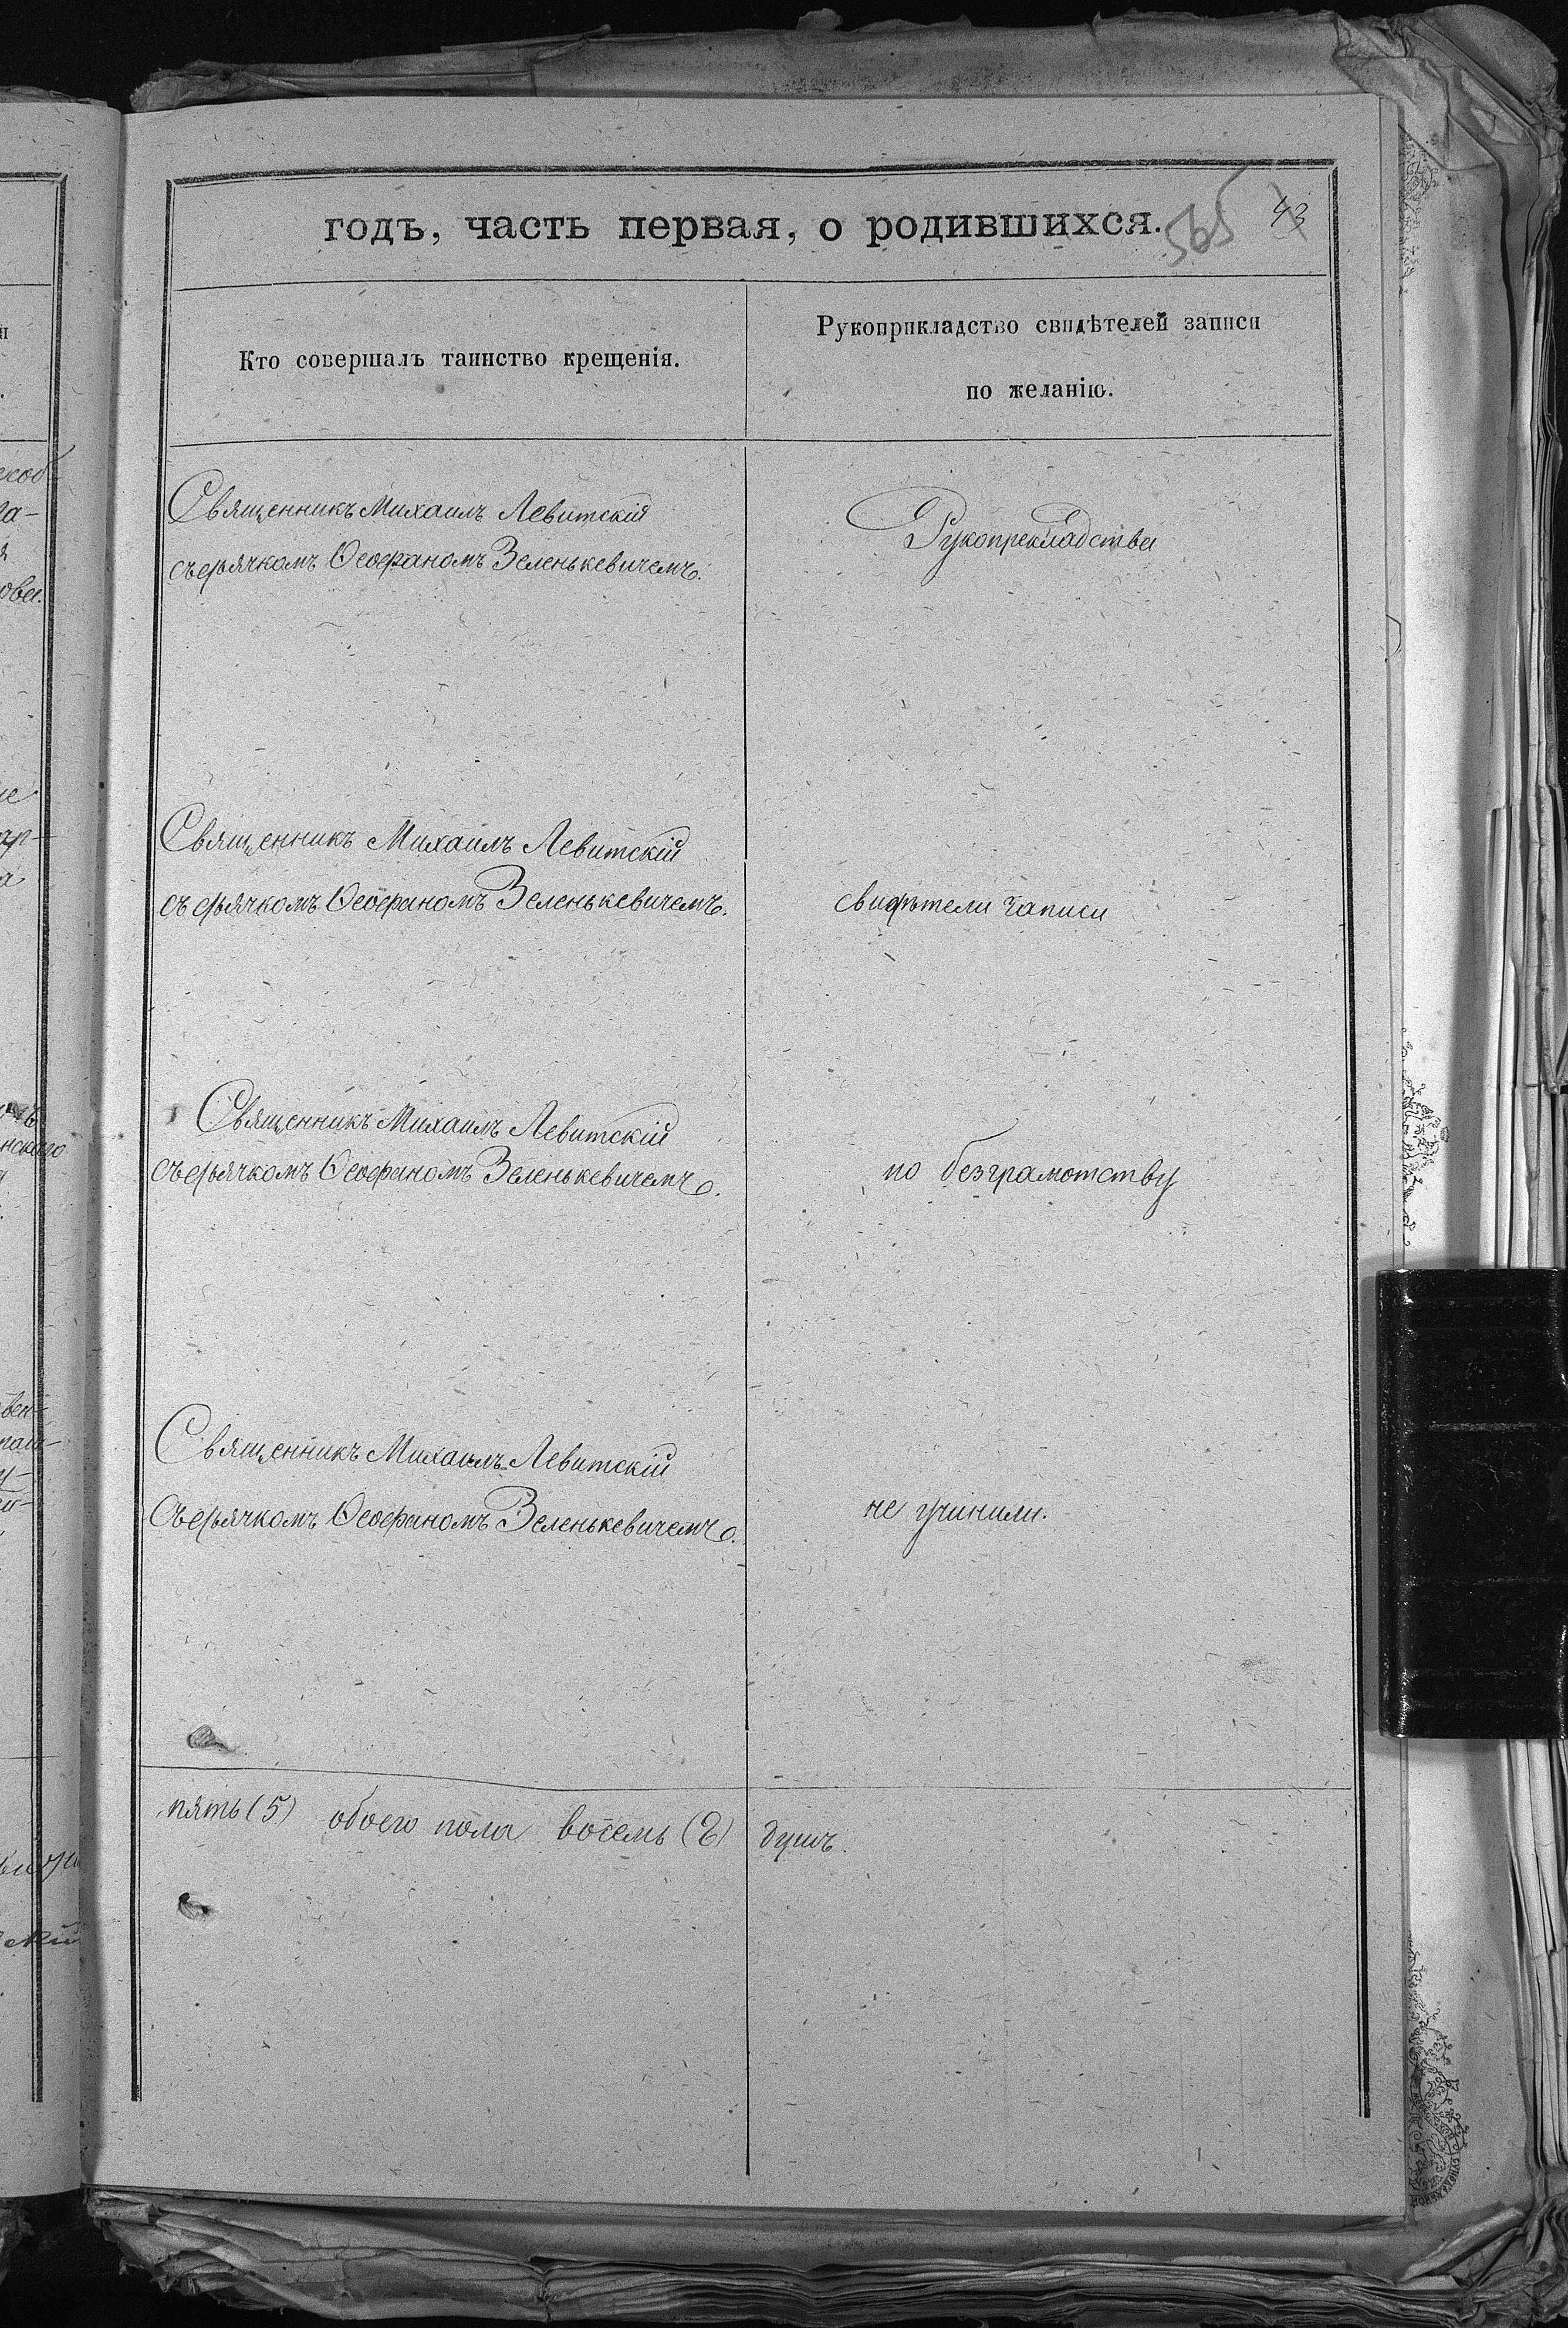 годъ, часть первая, о родившихся.
565
43
Кто совершалъ таинство крещенія.
Рукоприкладство свидѣтелей записи
по желанію.
Священникъ Михаилъ Левитскій
съ дьячкомъ Ѳеофаномъ Зеленькевичемъ.
Рукопрекладства
Священникъ Михаилъ Левитскій
съ дьячкомъ Ѳеофаномъ Зеленькевичемъ.
свидѣтели записи
Священникъ Михаилъ Левитскій
съ дьячкомъ Ѳеофаномъ Зеленькевичемъ.
по безграмотству
Священникъ Михаилъ Левитскій
съ дьячкомъ Ѳеофаномъ Зеленькевичемъ.
не учинили.
пять (5) обоего пола восемь (8) душъ.